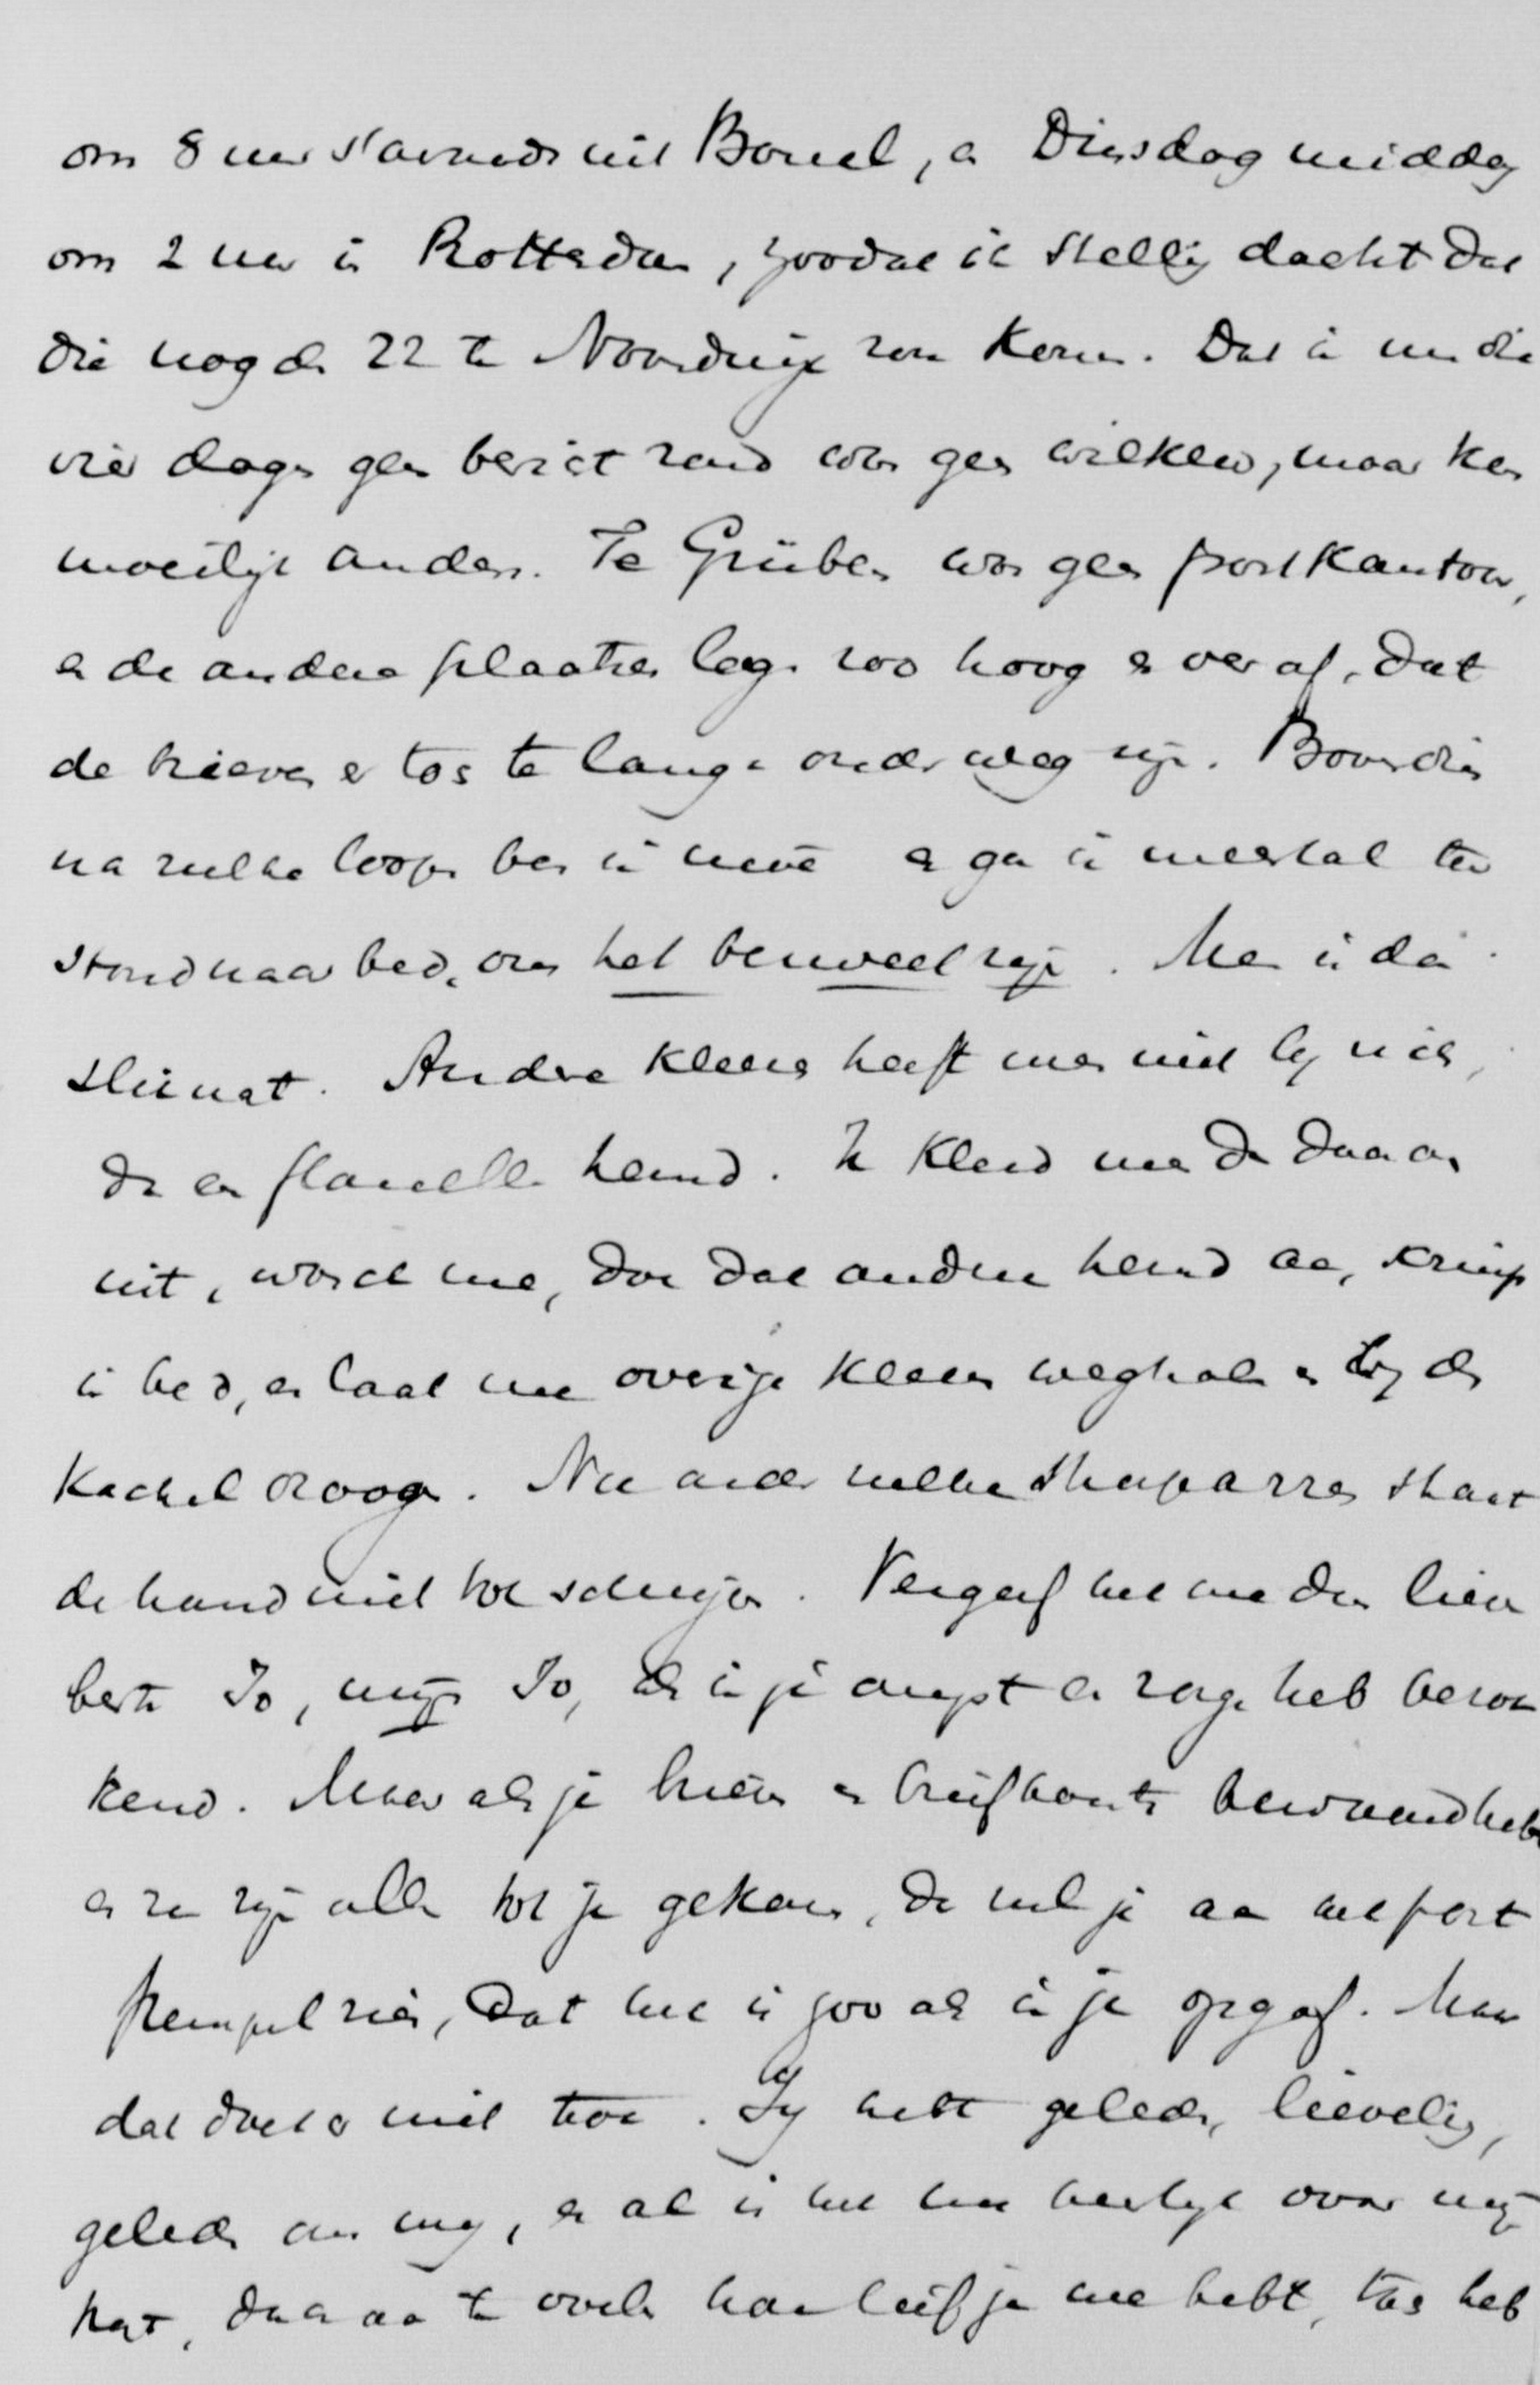 om 8 uur 's avonds uit Basel, en Dinsdag middag
om 2 uur in Rotterdam, zoodat ik stellig dacht dat
die nog den 22 te Noordwijk zou komen. Dat ik nu die
vier dagen geen bericht zond was geen willekeur, maar kon
moeilijk anders. Te Grüben was geen postkantoor,
en de andere plaatsen lagen zoo hoog en ver af, dat
de brieven er tos te lang onderweg zijn. Bovendien
na zulke loopen ben ik moe en ga ik meestal ter
stond naar bed, om het benweet zijn. Men is dan
slijknat. Andere kleeren heeft men niet bij zich,
dan een flanellen hemd. Ik kleed me dan daar
uit, wasch me, doe dat andere hemd aan, kruip
in bed, en laat me overige kleeren weghalen en bij de
kachel droogen. Nu onder zulke staat
de hand niet tot schrijven. Vergeef het me dan lieve
beste Jo, mijn Jo, als ik je angst en zorg heb berok
kend. Maar als je brieven en briefkaarten bewaard hebt
en ze zijn alle tot je gekomen, dan zul je aan het post
stempel zien, dat het is zoo als ik je opgaf. Maar
dat doet er niet toe. Jij hebt geleden, lieveling,
geleden om mij, en al is het heerlijk voor mijn
hart, daaraan te voelen hoe lief je me hebt, tos heb